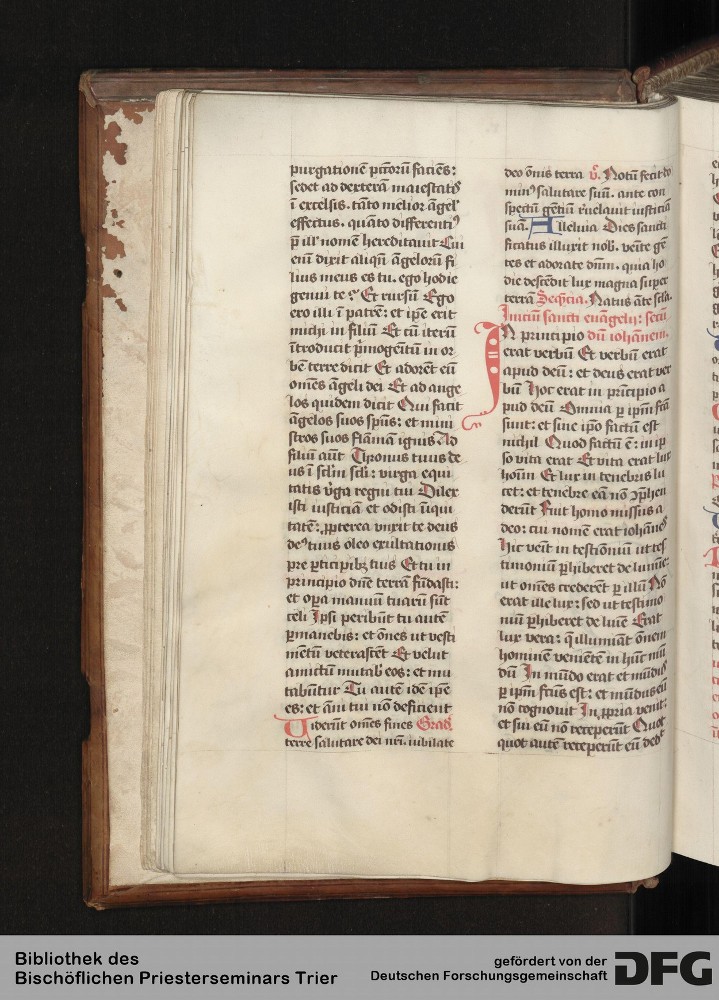 purgationē pctorū faciēs:
sedet ad dexterā maiestatꝭ
ī excelsis. tāto melior āgel'
effectus. quāto differentiꝰ
p̄ ill' nomē hereditauit Cui
enī dixit aliqn̄ āgelorū fi
lius meus es tu. ego hodie
genui te Et rursū Ego
ero illi ī patrē: et ip̄e erit
michi in filiū Et cū iterū
ītroducit p̄mogēitū in or
bē terre dicit Et adorēt eū
om̄es āgeli dei Et ad ange
los quidem dicit Qui facit
āgelos suos sp̄us: et mini
stros suos flāmā ignis Ad
filiū aūt Thronus tuus de
us ī sc̄lm sc̄li: virga equi
tatis v̄ga regni tui Dilex
isti iusticiā et odisti īiqui
tatē: ꝓpterea vnxit te deus
deꝰ tuus oleo exultationis
pre ꝑticipibꝫ tuis Et tu in
principio dn̄e terrā fūdasti:
et oꝑa manuū tuarū sūt
celi Ipsi peribūt tu autē
ꝑmanebis: et om̄es ut vesti
mētū veterascēt Et velut
amictū mutab' eos: et mu
tabūtur Tu autē idē ip̄e
es: et āni tui nō deficient
Viderūt om̄es fines Grad'.
terre salutare dei nr̄i. iubilate
deo om̄is terra v̄. Notū fecit do
minꝰ salutare suū. ante con
spectū gētiū reuelauit iusticiā
suā. Alleluia Dies sancti
ficatus illuxit nob'. venite gē
tes et adorate dn̄m. quia ho
die descēdit lux magna super
terrā Seq̄ntia. Natus āte sc̄la.
Iniciū sancti euāgelij: secū
In principio dū iohānem.
erat verbū Et verbū erat
apud deū: et deus erat ver
bū Hoc erat in prīcipio a
pud deū Omnia ꝑ ip̄m fcā
sunt: et sine ip̄o factū est
nichil Quod factū ē: in ip
so vita erat Et vita erat lux
hoīm Et lux in tenebris lu
cet: et tenebre eā nō ꝯp̄hen
derūt Fuit homo missus a
deo: cui nomē erat iohānes
Hic venit in testīoniū ut tes
timoniū ꝑhiberet de lumīe:
ut om̄es crederēt ꝑ illū Nō
erat ille lux: sed ut testimo
niū ꝑhiberet de luīe Erat
lux vera: q̄ illumiāt om̄em
hominē veniētē in hūc mū
dū In mūdo erat et mūdus
ꝑ ip̄m fcūs est: et mūdus eū
nō cognouit In ꝓpria venit:
et sui eū nō receperūt Quot
quot autē receperūt eū dedit
Bibliothek des
Bischöflichen Priesterseminars Trier
gefördert von der
Deutschen Forschungsgemeinschaft DFG